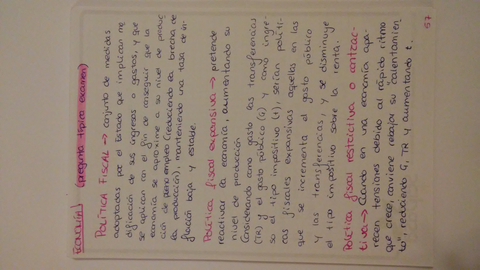 ECONOMÍA (pregunta típica examen)
POLÍTICA FISCAL → conjunto de medidas
adoptadas por el Estado que implican mo
dificación de sus ingresos o gastos, y que
se aplican con el fin de conseguir que la
economía se aproxime a su nivel de produc
ción de pleno empleo (reduciendo la brecha de
la producción), manteniendo una tasa de in
flación baja y estable.
Política fiscal expansiva → pretende
reactivar la economía, aumentando su
nivel de producción.
Considerando como gasto las transferencias
(TR) y el gasto público (G) y como ingre-
so el tipo impositivo (t), serían políti-
cas fiscales expansivas aquellas en las
que se incrementa el gasto público
y las transferencias, y se disminuye
el tipo impositivo sobre la renta.
Política fiscal restrictiva o contrac-
tiva → Cuando en una economía apa-
recen tensiones debido al rápido ritmo
que crece, conviene rebajar su calentamien
to", reduciendo G, TR y aumentando t.
57